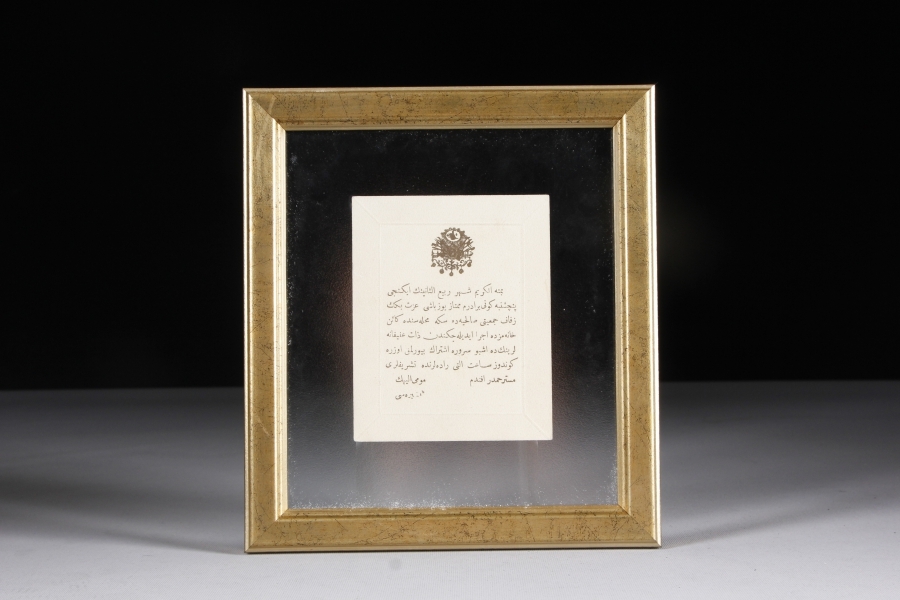 بمنه الكريم شهر ربيع الثانينك ايكنجى
پنجشنبه كونى برادرم ممتاز يوزباشى عزت بكك
زفاف جمعيتى صالحيه‌ده سكه محله‌سنده كائن
خانه‌مزده اجرا ايديله‌جكندن ذات عليفانه
لرينك‌ده اشبو سروره اشتراك بيورلمق اوزره
كوندوز ساعت التى راده‌لرنده تشريفلرى
مسترحمدر افندم مومى اليهك